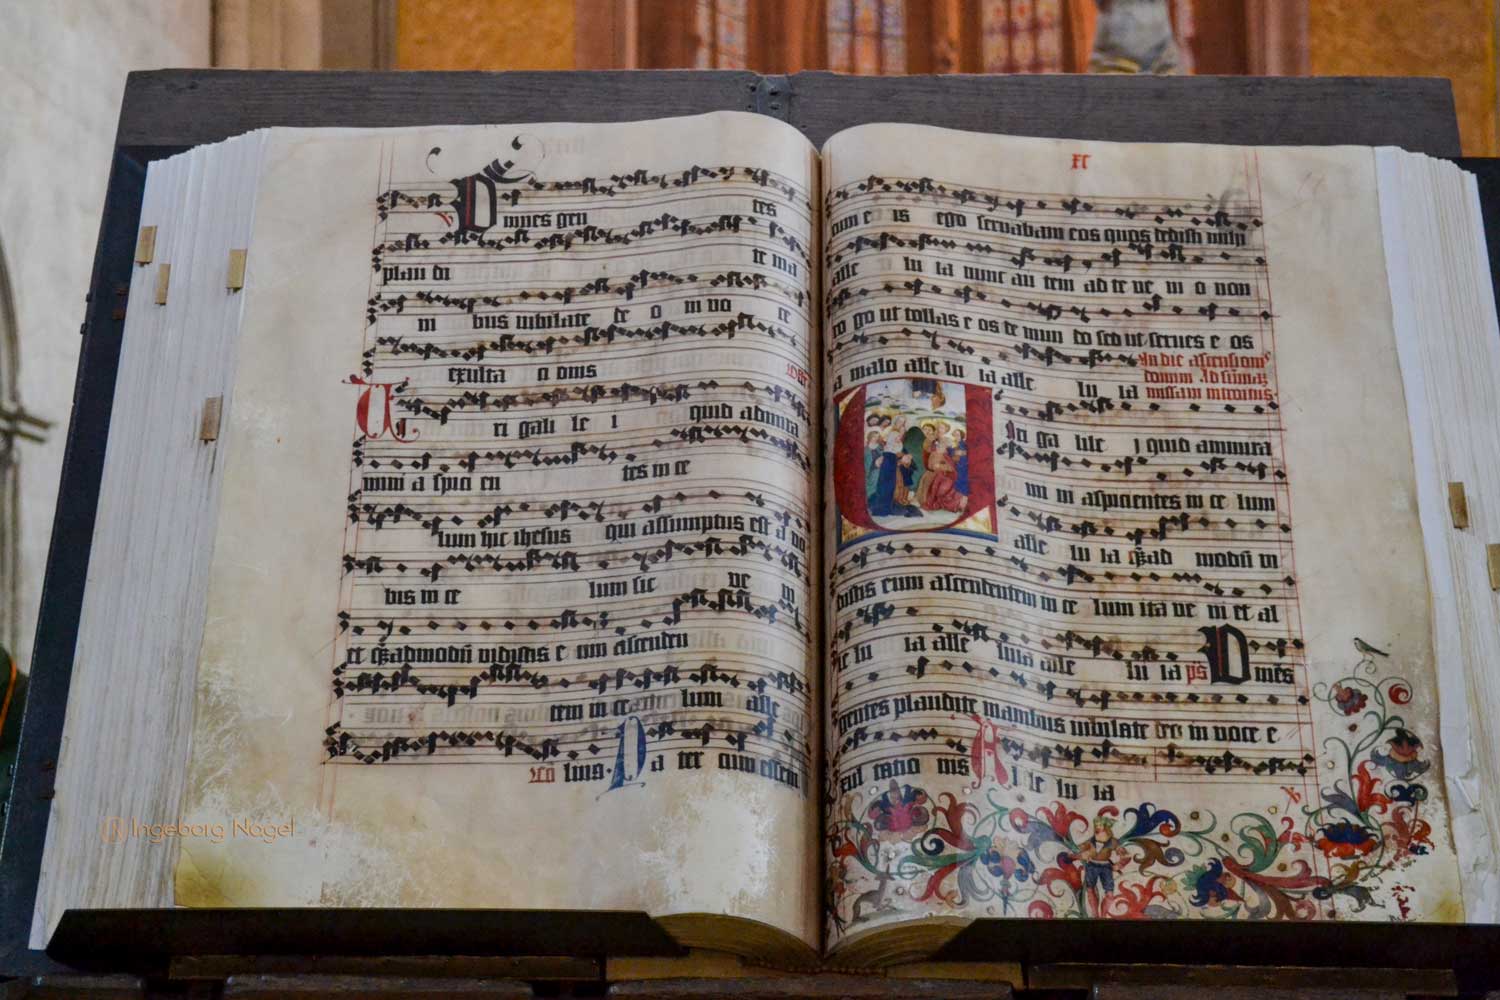 Omnes gen tes
plau di te ma
ni bus iubilate de o in vo ce
exulta ti o nis
Ui ri gali le i quid admira
mini a spici en tes in ce
lum hic ihesus qui assumptus est a vo
bis in ce lum sic ve ni
et quadmodũ vidistis e um ascenden
tem in ce lum alle
luia. Pa ter cum essem
xc
cum e is ego servabam eos quos dedisti mihi
alle lu ia nunc au tem ad te ve ni o non
ro go ut tollas e os de mun do sed ut serves e os
a malo alle lu ia alle lu ia In die ascensionis
domini Ad sumã
missam introitus
Uiri ga lile i quid ammira
mi ni aspicientes in ce lum
alle lu ia quad modũ vi
distis eum ascendentem in ce lum ita ve ni et al
le lu ia alle luia alle lu ia ps Omēs
gentes plaudite manibus iubilate deo in voce e
xul tatio nis Al le lu ia
Ingeborg Nagel